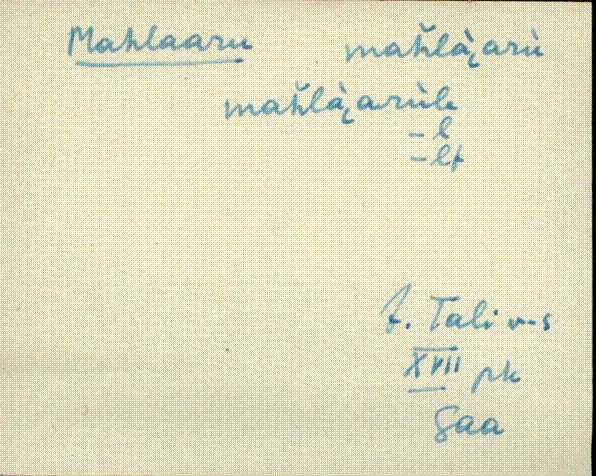 Mahlaaru mah̆là̬arù
mah̆là̬arùlɛ
-l
-lt
J. Tali v-s
XVII pk
Saa